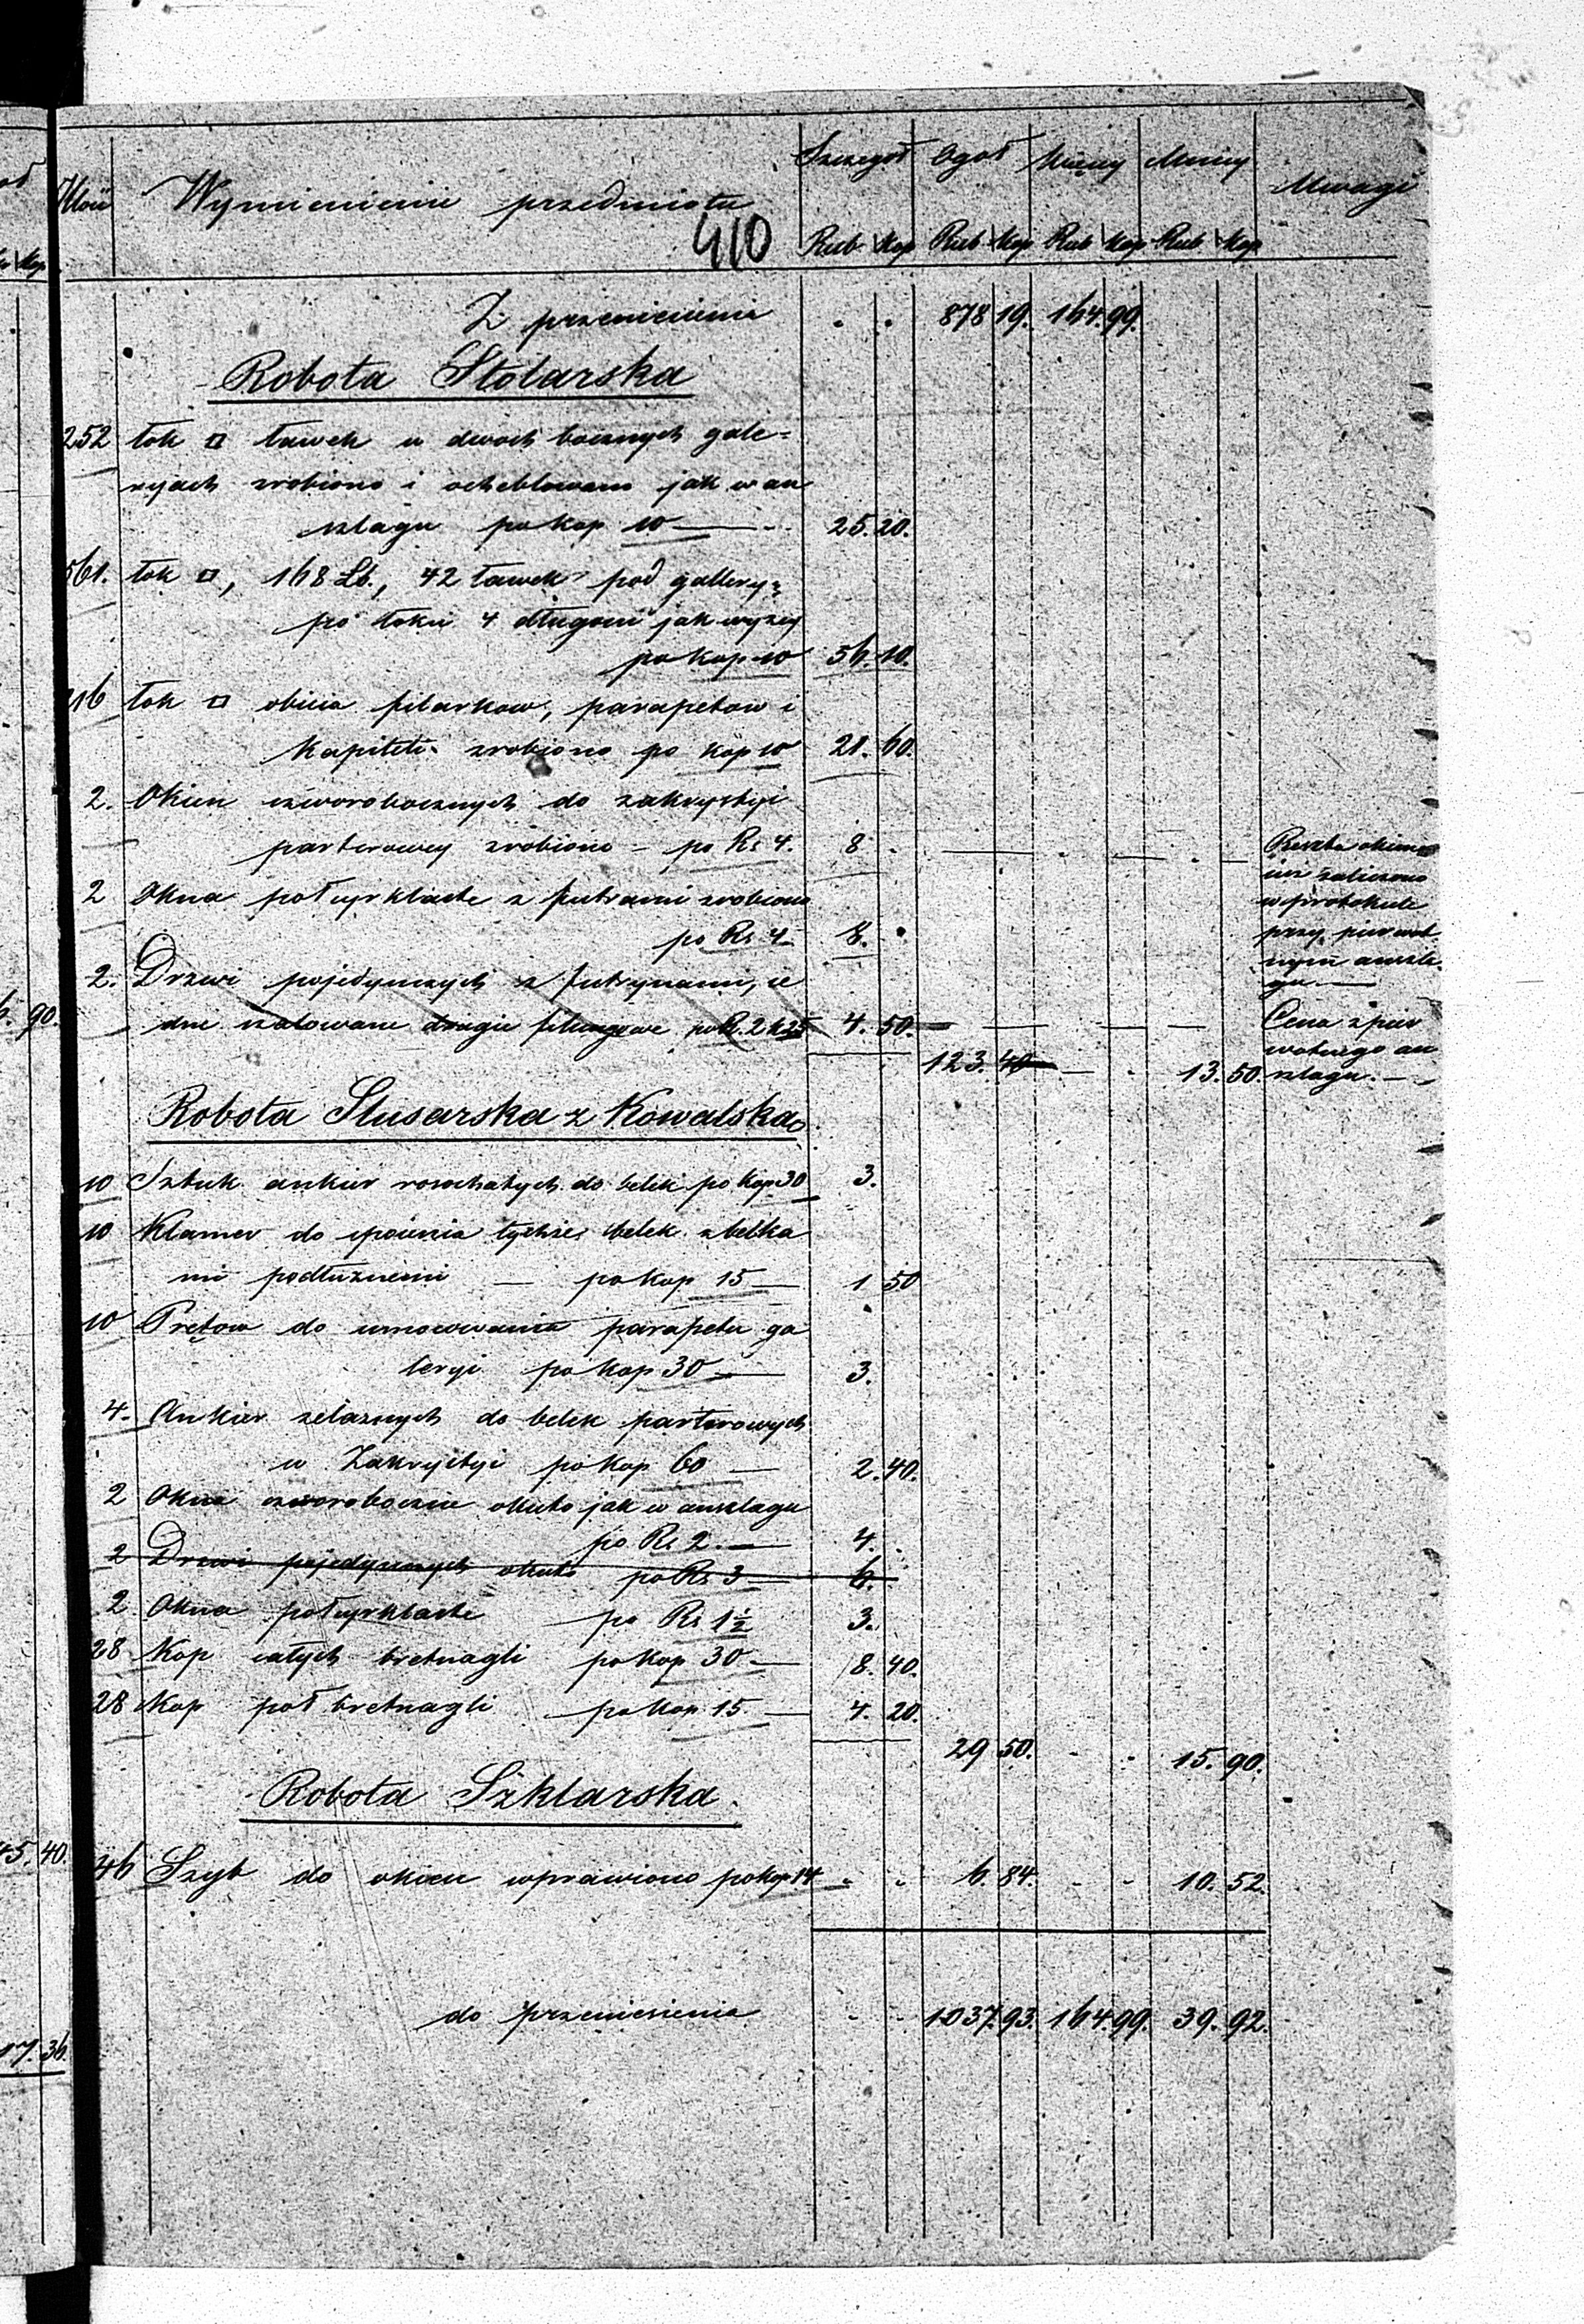 Szczegoł Ogoł Więcey Mniey
Wymienienie przedmiotu Uwagi
410
Rub Kop Rub Kop Rub Kop Rub Kop
Z przeniesienia 878 19. 164. 99.
Robota Stolarska
252 łok □ ławek w dwoch bocznych gale=
ryach zrobiono i oheblowano jak w an
szlagu po kop 10 — 25. 20.
561. łok □, 168 Lb., 42 ławek pod gallery=
po łokci 4 długości jak wyżey
po kop 10 56. 10.
216 łok □ obicia filarkow, parapetow i
Kapiteli zrobiono po kop 10 21. 60.
2. Okien czworobocznych do zakrystyi
parterowey zrobiono – po Rs 4. 8
Reszta okien
już zaliczono
w protokule
przy pierwot
nym anszla
gu —
2 Okna połcyrklaste z futrami zrobiono
po Rs 4 8.
2. Drzwi pojedynczych z futrynami, je
dne szalowane drugie filungowe po R. 2 k 25 4. 50.
Cena z pier
wotnego an
szlagu. —
123. 40 13. 50.
Robota Slusarska z Kowalską
10 Sztuk ankier rosochatych do belek po kop 30 3.
10 Klamer do spoienia tychże belek z belka
mi podłużnemi — po kop 15 — 1 50
10 Prętow do umocowania parapetu ga
leryi po kop 30 — 3.
4. Ankier żelaznych do belek parterowych
w Zakrystyi po kop 60 — 2. 40.
2 Okna czworoboczne okuto jak w anszlagu
po Rs 2. — 4.
2 Drzwi pojedynczych okuto po Rs 3 — 6.
2 Okna połcyrklaste po Rs 1½ 3.
28 Kop całych bretnagli po kop 30 — 8. 40.
28 Kop poł bretnagli po kop 15. — 4. 20.
29 50. 15. 90.
Robota Szklarska.
46 Szyb do okien wprawiono po kop 14 6. 84. 10. 52.
do przeniesienia 1037. 93. 164. 99. 39. 92.
6. 90.
45. 40.
17. 36.